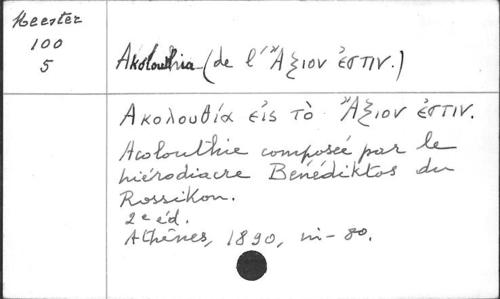 Meester
100
5
Akolouthia (de l' Ἄξιον ἐστιν.)
Ακολουθία εἰς τὸ Ἄξιον ἐστιν.
Acolouthie composée par le
hiérodiacre Bénédiktos du
Rossikon.
2e éd.
Athènes, 1890, in-8o.